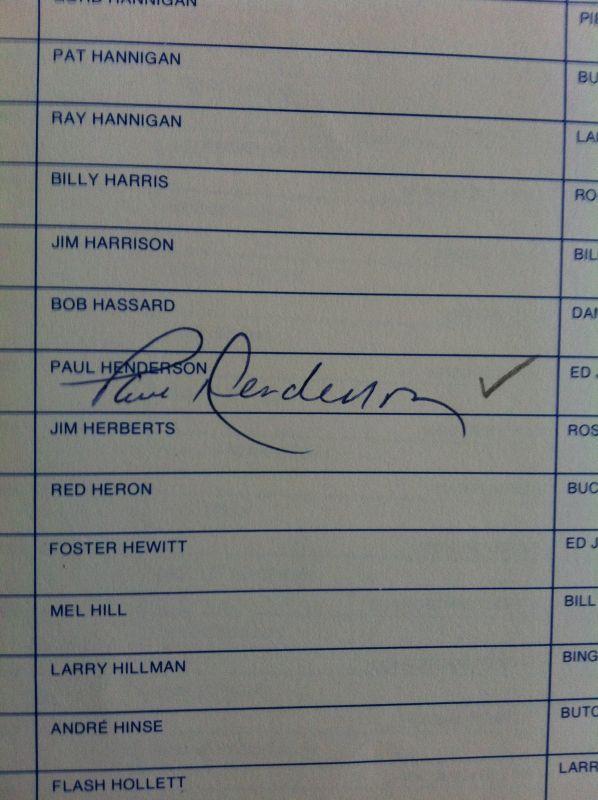 HANNIGAN PIE
PAT HANNIGAN BU
RAY HANNIGAN LA
BILLY HARRIS RO
JIM HARRISON BIL
BOB HASSARD DA
PAUL HENDERSON ED
Paul Henderson ✓
JIM HERBERTS ROS
RED HERON BUC
FOSTER HEWITT ED J
MEL HILL BILL
LARRY HILLMAN BING
ANDRÉ HINSE BUTC
FLASH HOLLETT LARR